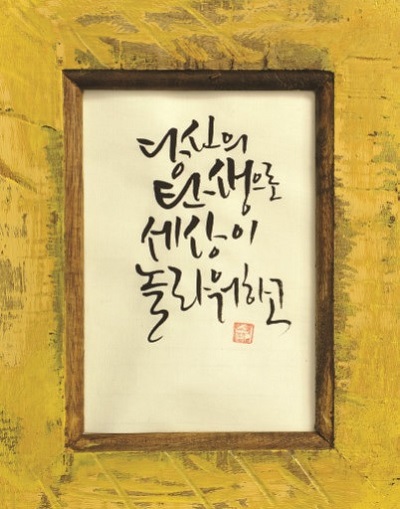 당신의
탄생으로
세상이
놀라워하고